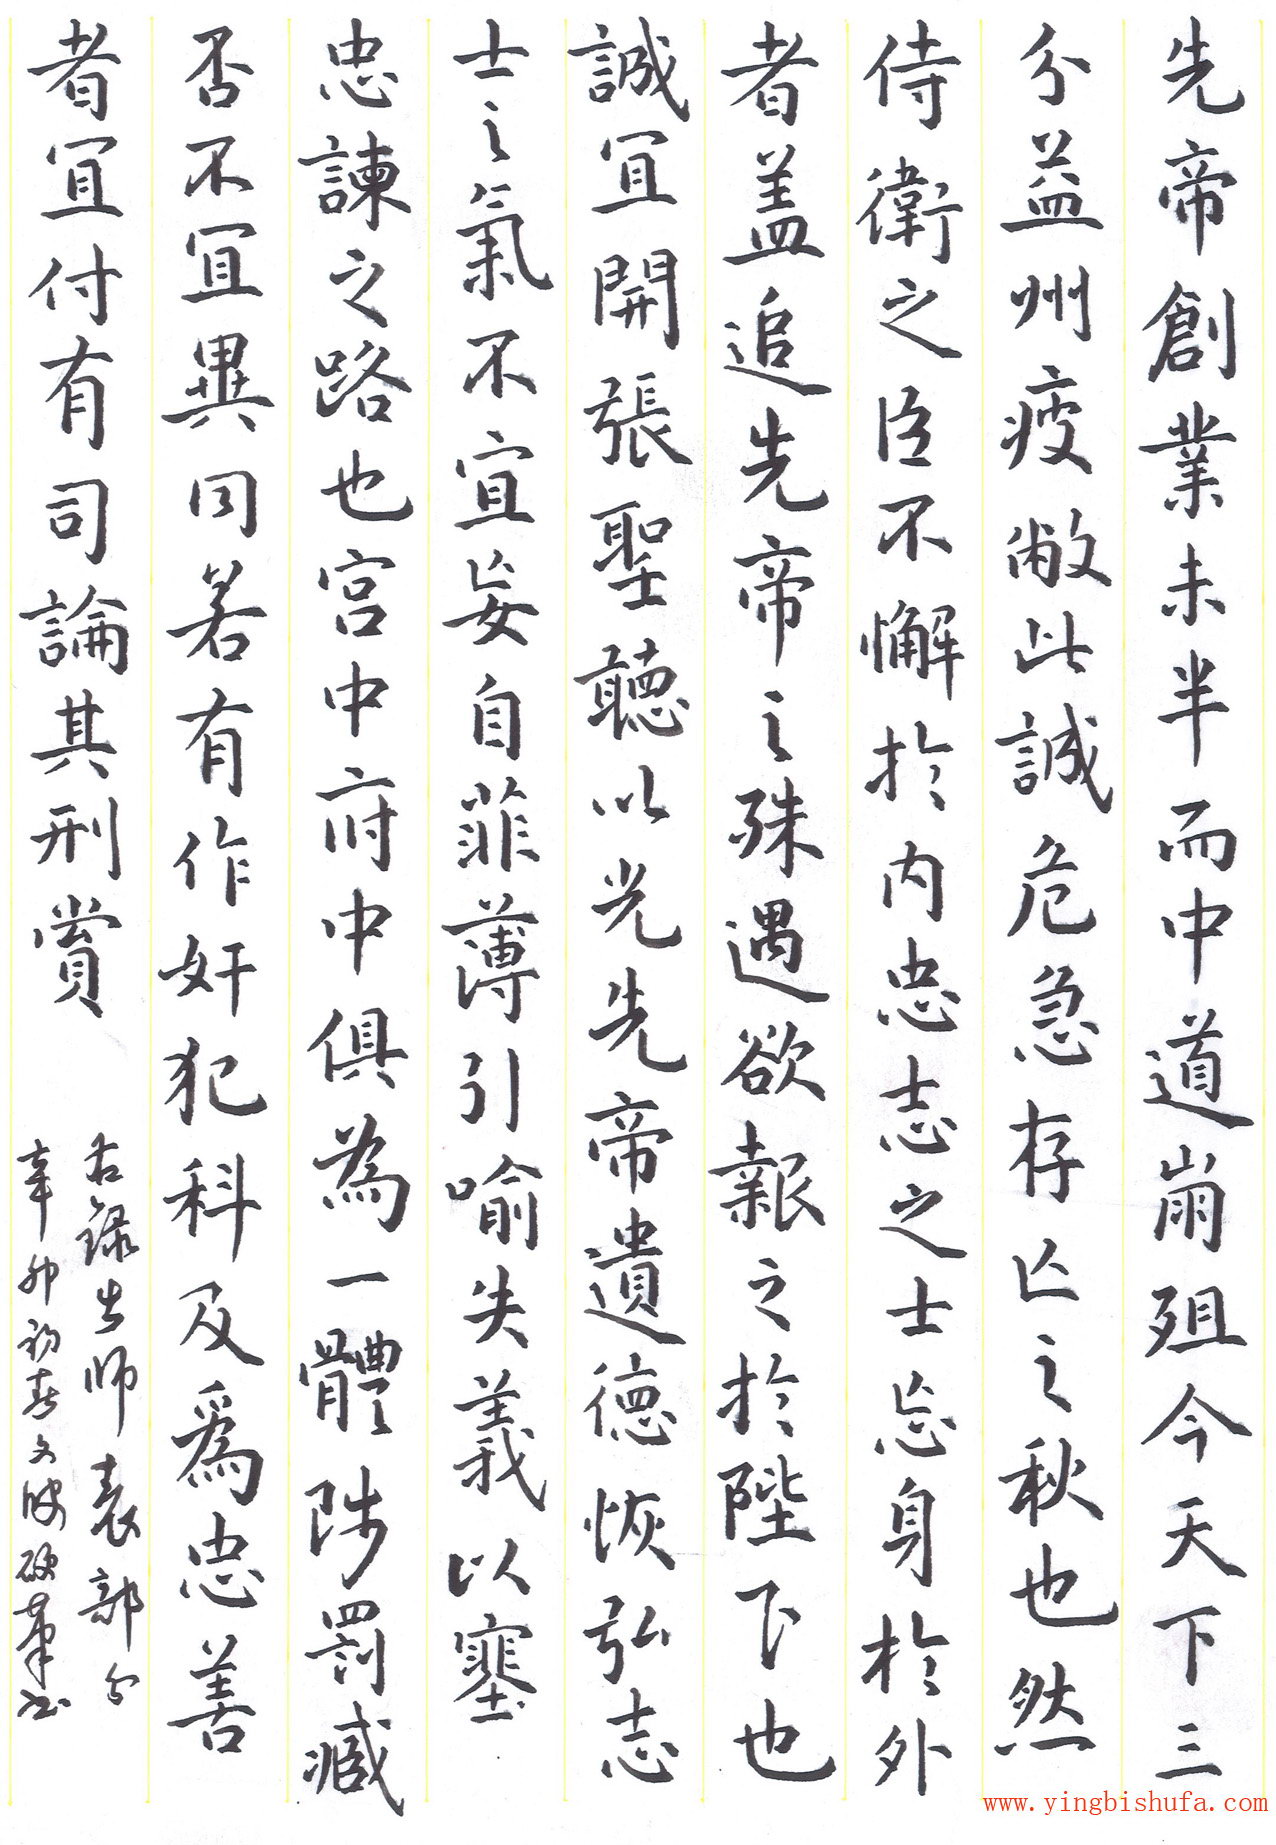 先帝創業未半而中道崩殂今天下三
分益州疲敝此誠危急存亡之秋也然
侍衛之臣不懈於内忠志之士忘身於外
者盖追先帝之殊遇欲報之於陛下也
誠宜開張聖聽以光先帝遺德恢弘志
士之氣不宜妄自菲薄引喻失義以塞
忠諫之路也宫中府中俱為一體陟罰臧
否不宜異同若有作奸犯科及爲忠善
者宜付有司論其刑賞
右録出师表部分
辛卯初春文硬筆书
www.yingbishufa.com